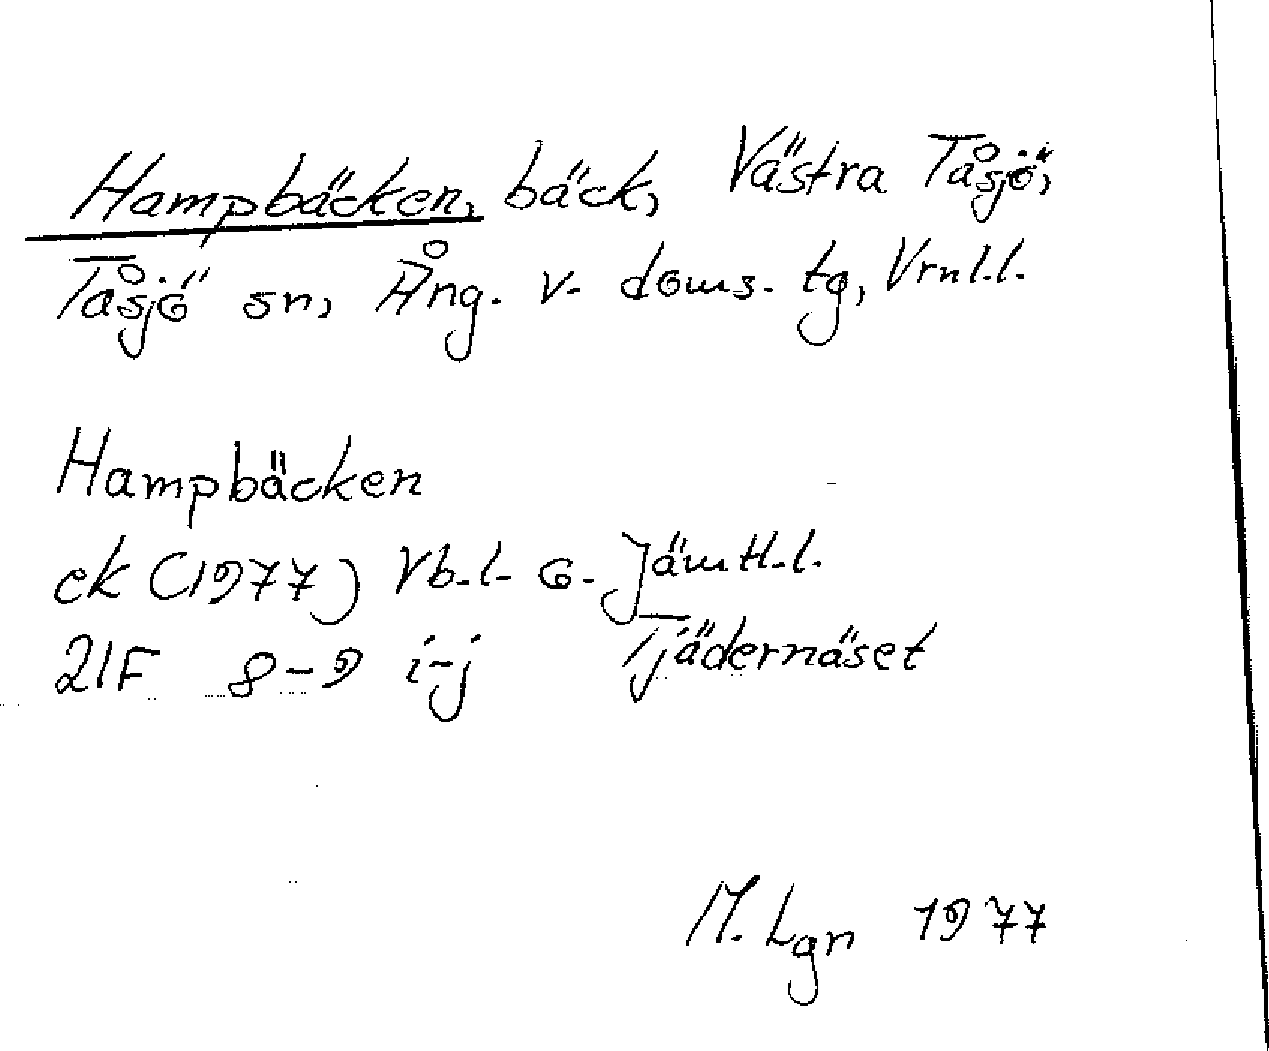 Hampbäcken, bäck, Västra Tåsjö,
Tåsjö sn, Ång. v. doms. tg, Vrnl.l.
Hampbäcken
ek (1977) Vb.l. o. Jämtl.l.
21F 8-9 i-j Tjädernäset
M. Lgn 1977